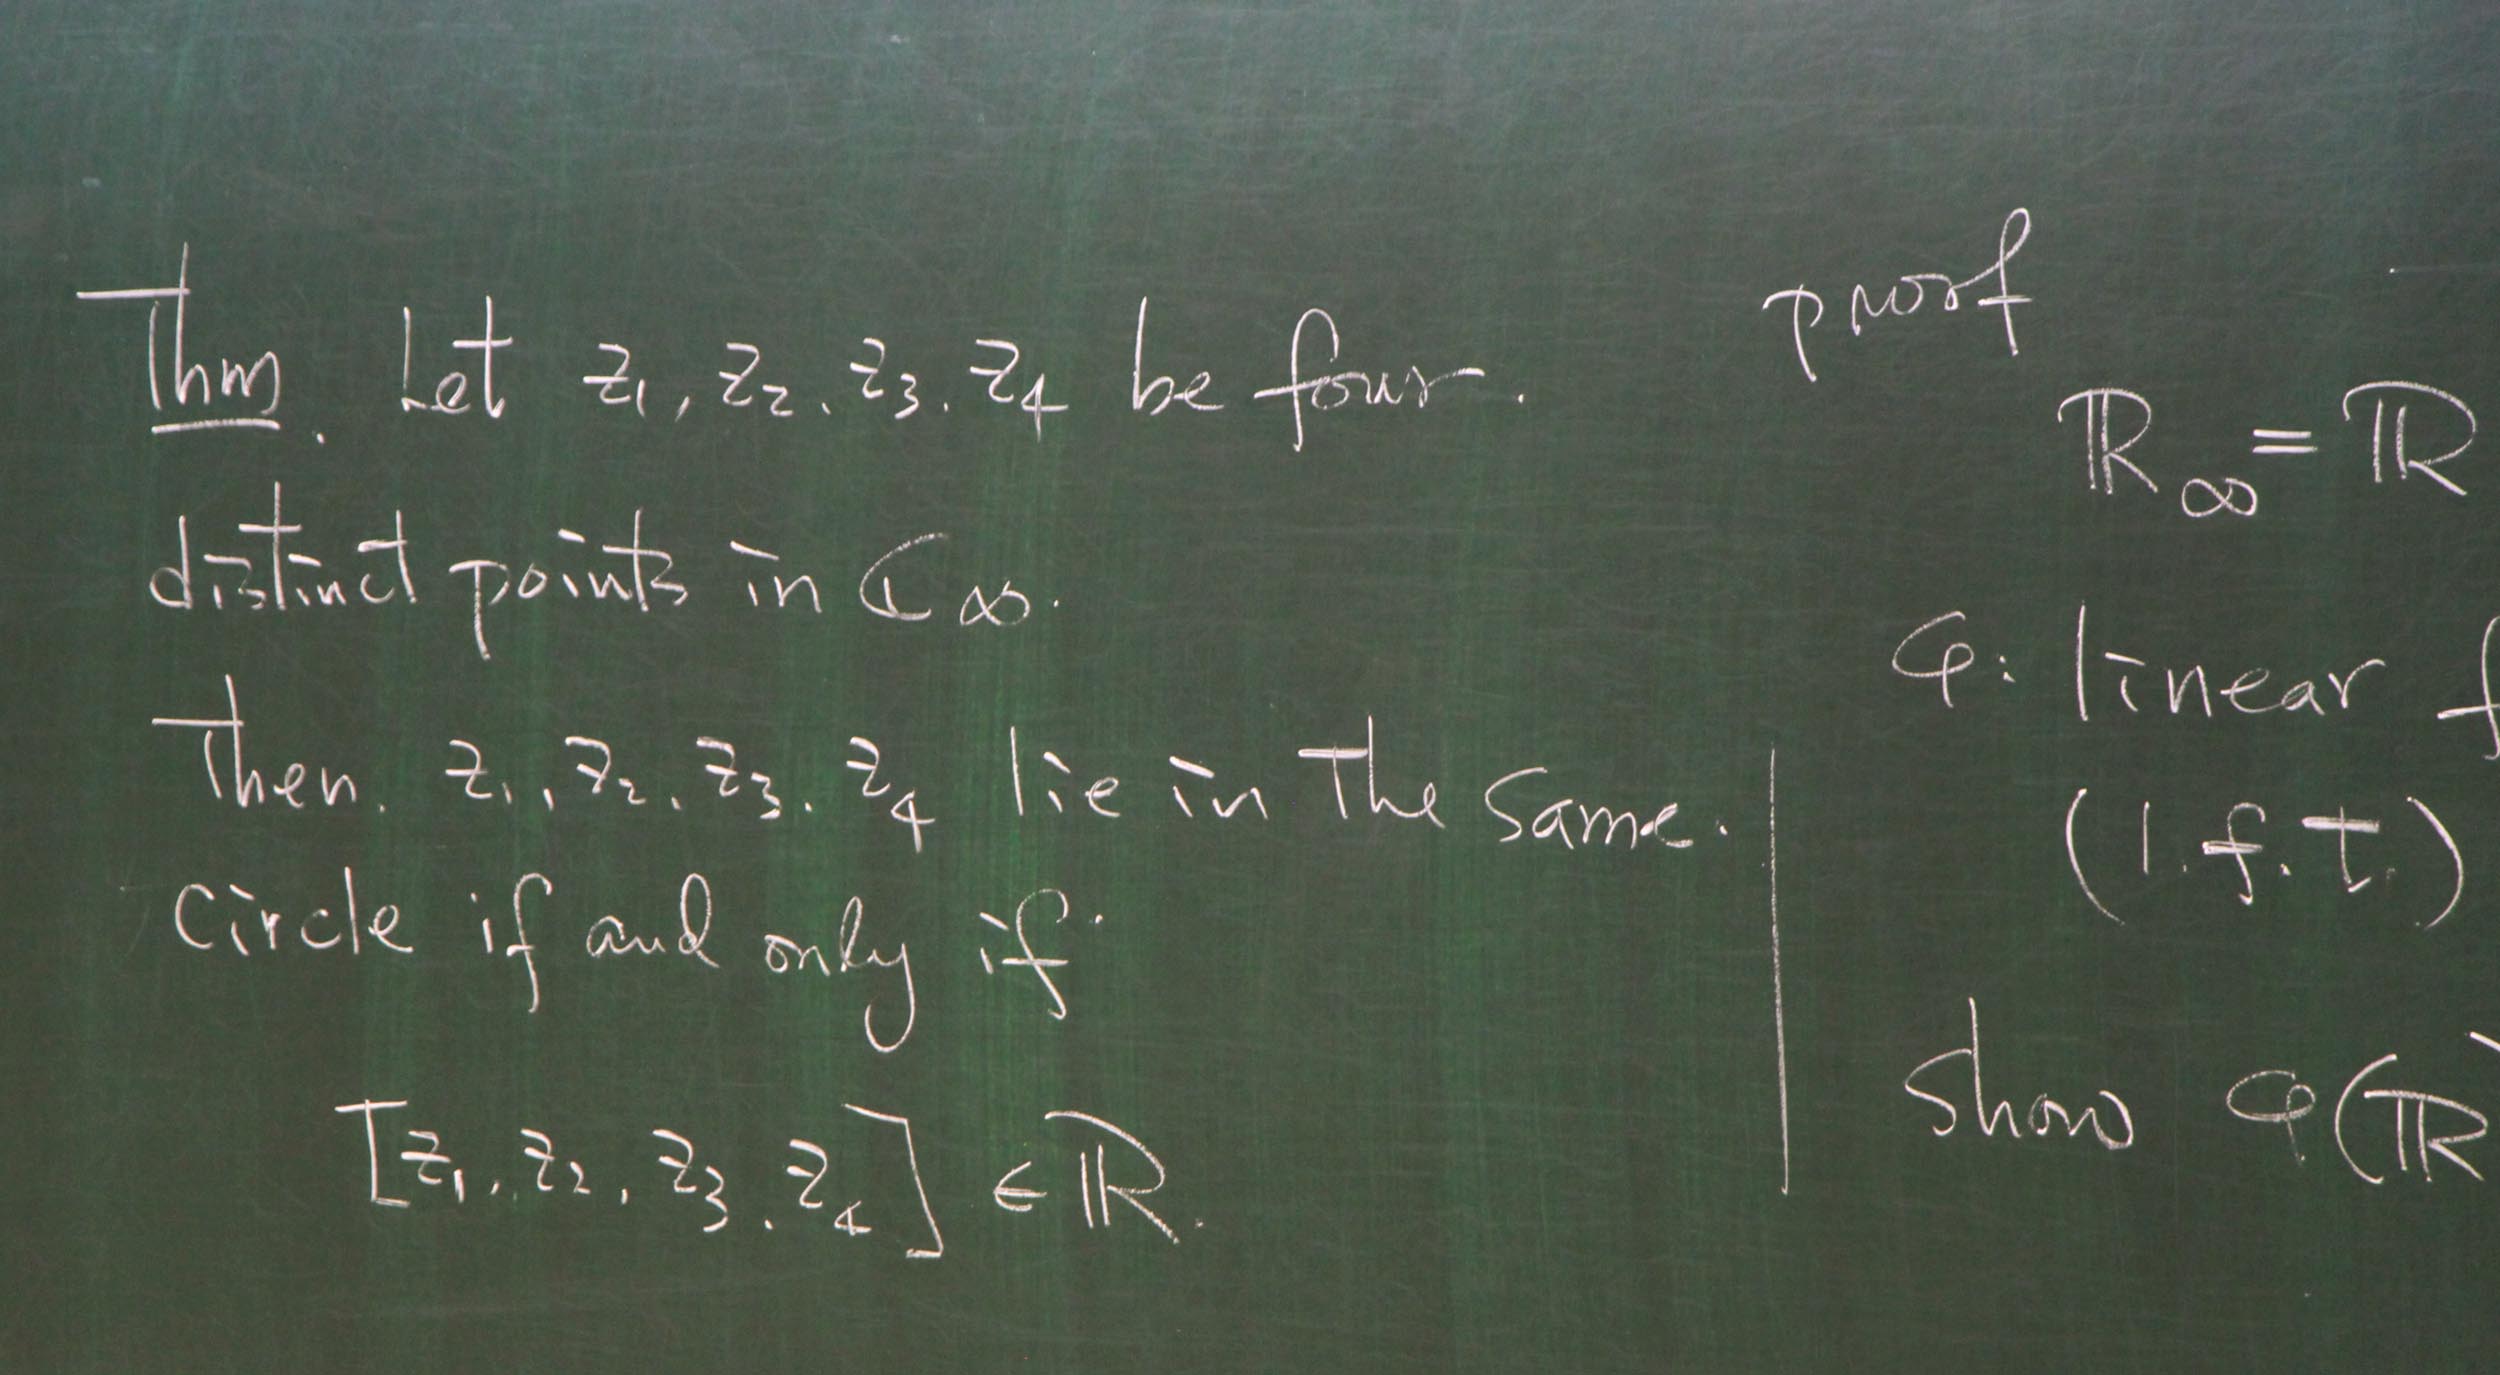 Thm. Let z₁, z₂, z₃, z₄ be four
distinct points in ℂ∞.
Then, z₁, z₂, z₃, z₄ lie in the same
circle if and only if
[z₁, z₂, z₃, z₄] ∈ ℝ.
proof
ℝ∞ = ℝ
φ: linear f
(l.f.t.)
show φ(ℝ